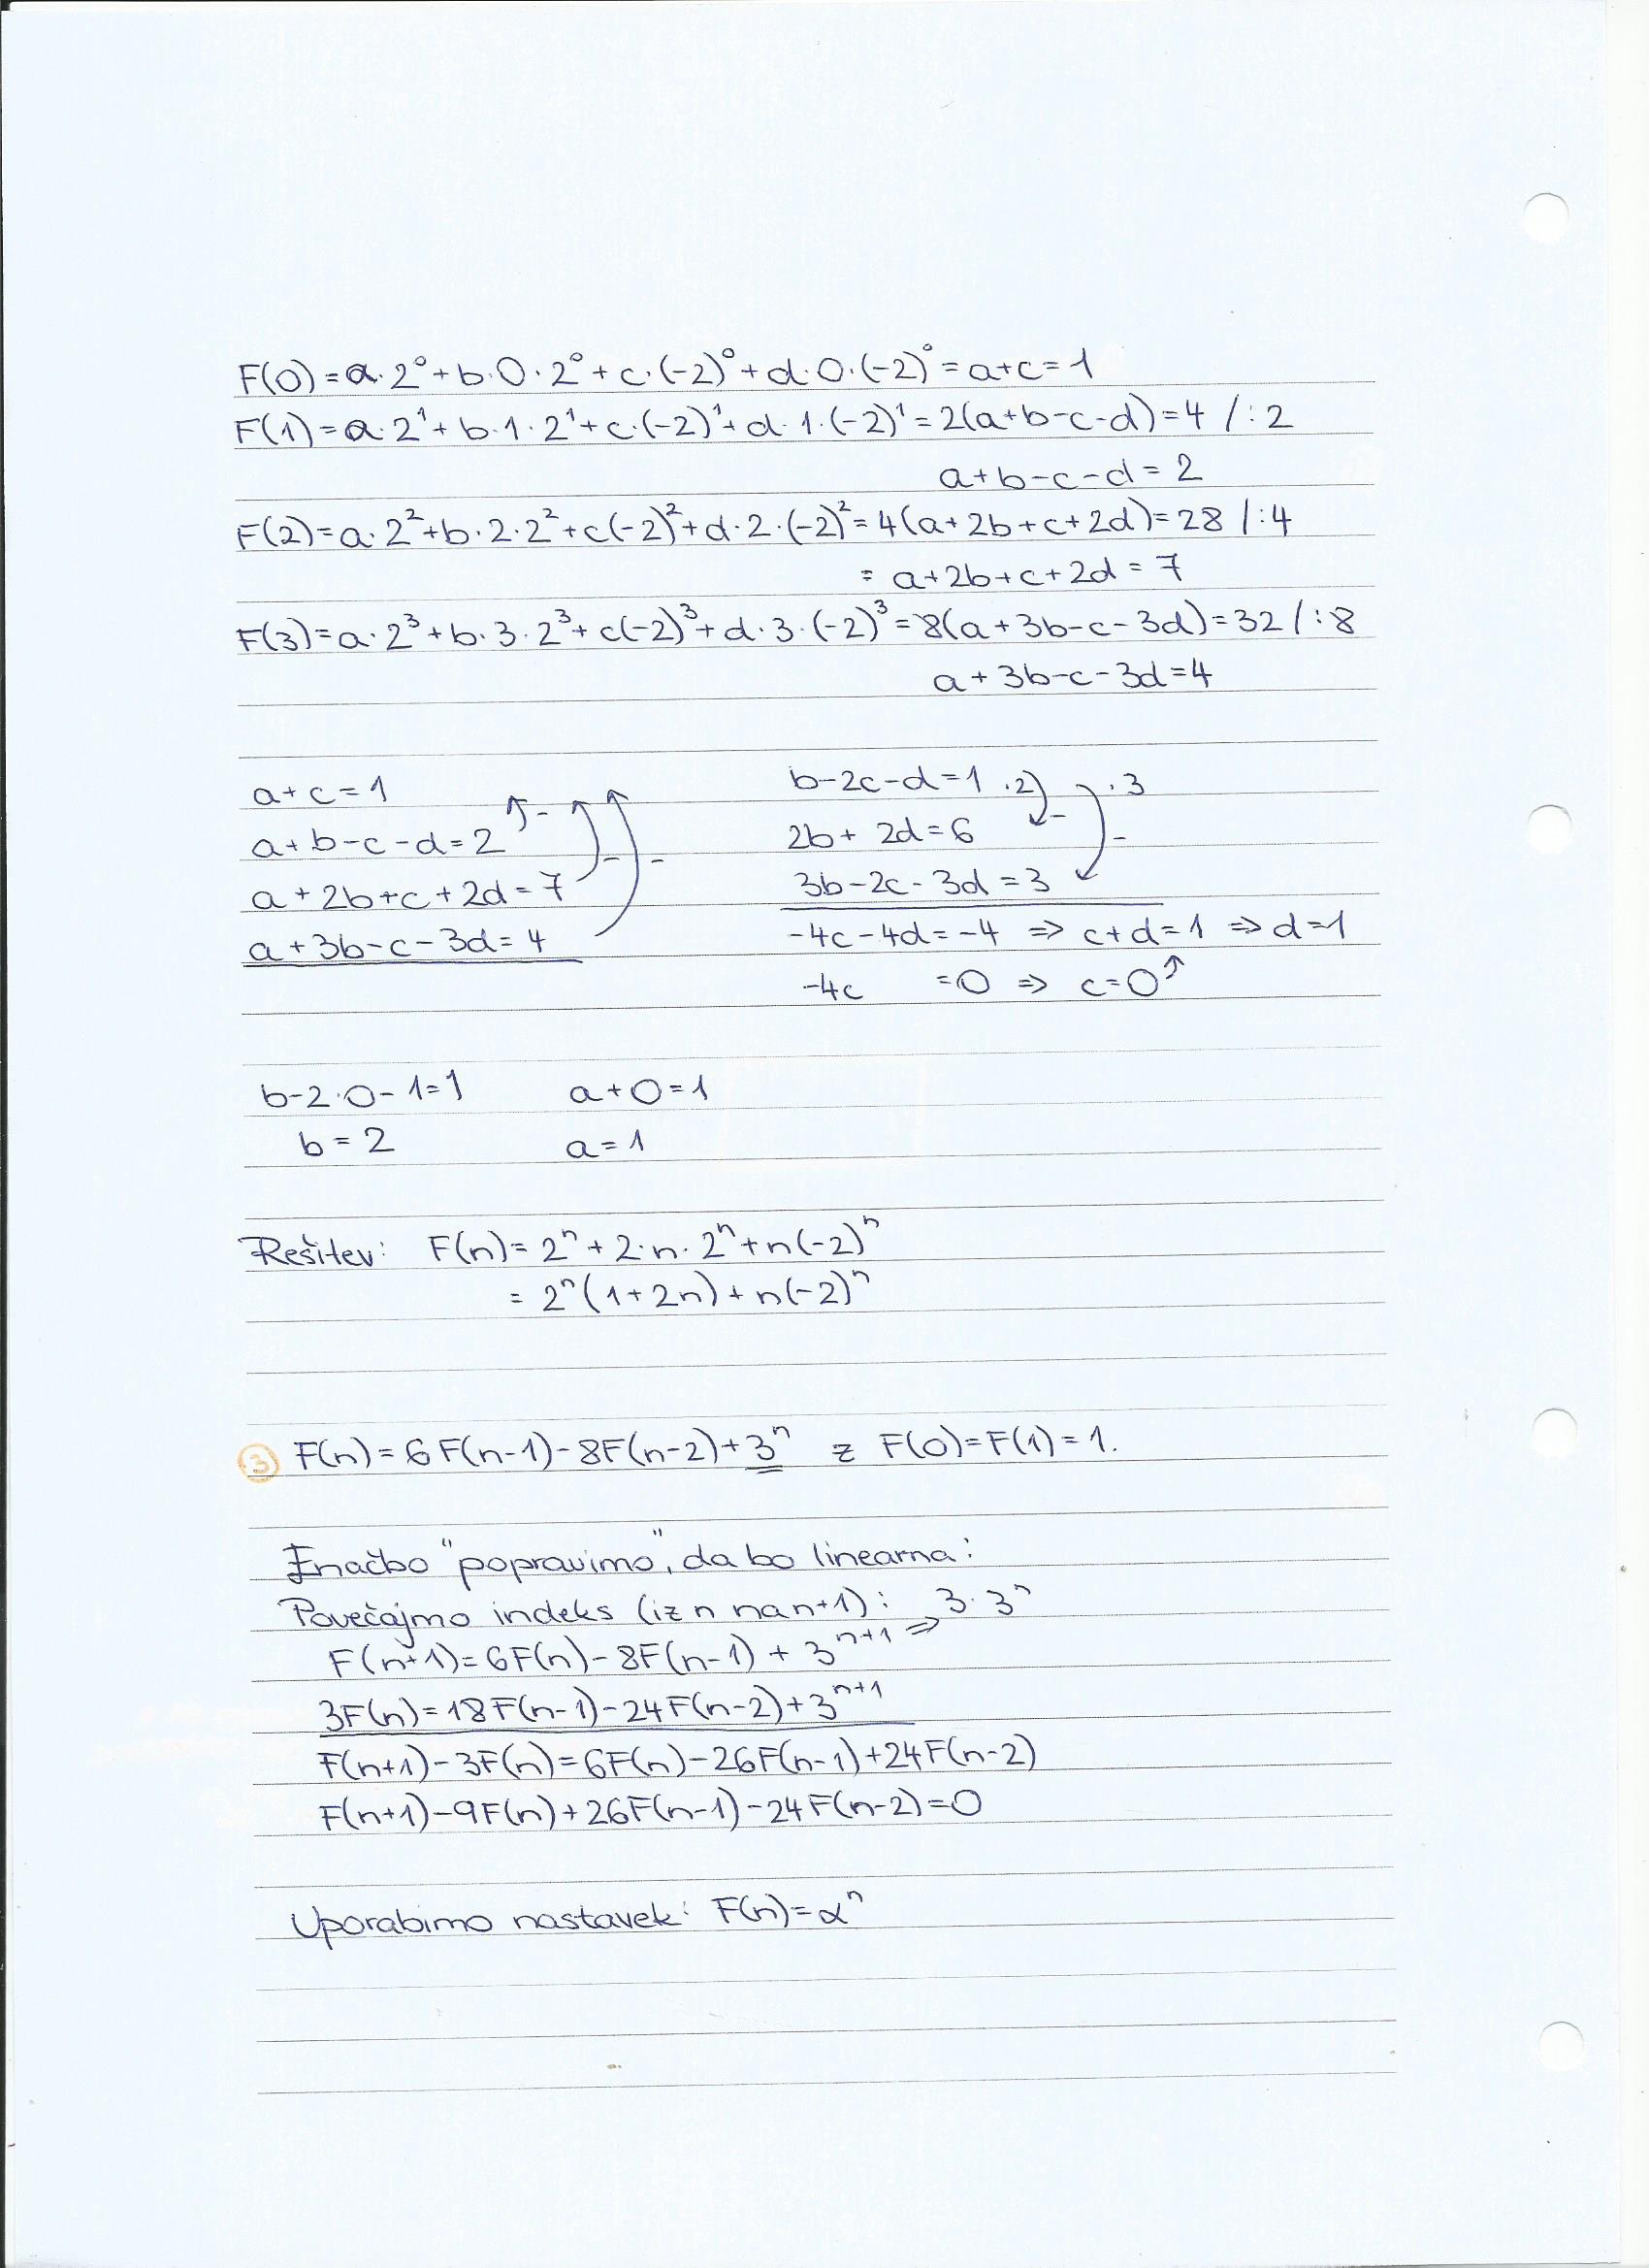 F(0)=a·2⁰+b·0·2⁰+c·(-2)⁰+d·0·(-2)⁰=a+c=1
F(1)=a·2¹+b·1·2¹+c·(-2)¹+d·1·(-2)¹=2(a+b-c-d)=4 /:2
a+b-c-d=2
F(2)=a·2²+b·2·2²+c(-2)²+d·2·(-2)²=4(a+2b+c+2d)=28 /:4
= a+2b+c+2d=7
F(3)=a·2³+b·3·2³+c(-2)³+d·3·(-2)³=8(a+3b-c-3d)=32 /:8
a+3b-c-3d=4
a+c=1
a+b-c-d=2 -
a+2b+c+2d=7 -
a+3b-c-3d=4 -
b-2c-d=1 ·2) ·3
2b+2d=6 -
3b-2c-3d=3 -
-4c-4d=-4 ⇒ c+d=1 ⇒ d=1
-4c =0 ⇒ c=0
b-2·0-1=1 a+0=1
b=2 a=1
Rešitev: F(n)=2ⁿ+2·n·2ⁿ+n(-2)ⁿ
= 2ⁿ(1+2n)+n(-2)ⁿ
③ F(n)=6F(n-1)-8F(n-2)+3ⁿ z F(0)=F(1)=1.
Enačbo "popravimo", da bo linearna:
Povečajmo indeks (iz n na n+1): 3·3ⁿ
F(n+1)=6F(n)-8F(n-1)+3ⁿ⁺¹ ⇒
3F(n)=18F(n-1)-24F(n-2)+3ⁿ⁺¹
F(n+1)-3F(n)=6F(n)-26F(n-1)+24F(n-2)
F(n+1)-9F(n)+26F(n-1)-24F(n-2)=0
Uporabimo nastavek: F(n)=αⁿ